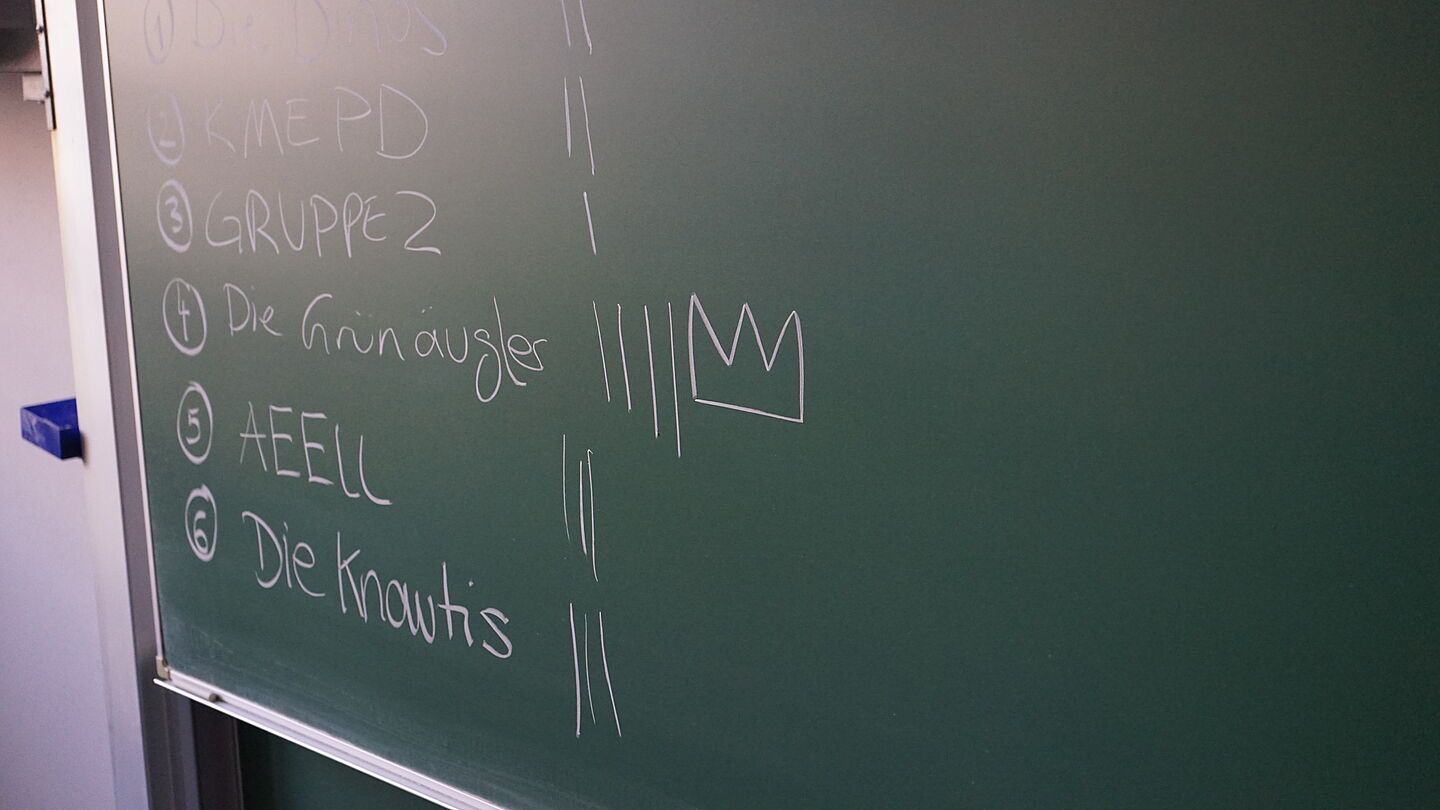 ① Die Dinos ||
② KMEPD ||
③ GRUPPE 2 |
④ Die Grünäugler ||||
⑤ AEELL |||
⑥ Die Knowtis |||